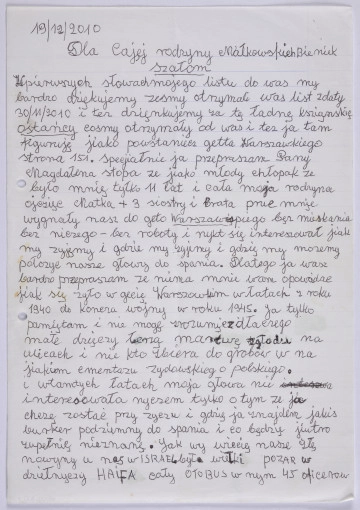 19/12/2010
Dla Całej rodzyny Małkowskich Bieniek
szalom
W pierwszych słowach mojego listu do was my
bardzo dziękujemy żesmy otrzymałe was list z daty
30/11/2010 i też dzięnkujemy za tę ładnę książniske
ostańcy cosmy otrzymały od was i też ja tam
figuruję jiako powstańcze getta Warszawskiego
strona 151. specjialnie ja przepraszam Panų
Magdalena stopa ze jiako młody chłopak ze
było mnię tylko 11 lat i cała moja rodzyna
ojciec Matka + 3 siostry i brata prue mnie
wygnały nasz do geto Warszawskiego bez mieskania
bez niczego - bez roboty i nykt się interesował jak
my żyjimy i gdzie my żyjimy i gdzię my możemy
położyć nasze głowy do spania. Dlatego ja wasz
bardzo przepraszam ze nima mnie wam opowiedze
jiak się żyło w gecię Warszawskim w latach z roku
1940 do końca wojny w roku 1945. ja tylko
pamiętam i nie mogę zrozumięć dlaczego
małe dzięcy leżą martwe z głodu na
ulicach i nie kto zbiera do grobów w na
jiakiem ementarzu żydowskięgo o polskięgo.
i włamych łatach moja głowa nie
interesowała nycsem tylko o tym ze ja
chcę zostać przy życiu i gdzię ja znajdem jakiś
bunker podziemny do spania i co będzy jiutro
zupełnię nieznanę. Jak wy wiecię nasze złę
nowyny u nas w ISRAEL była wełki pożar w
dzielnyczy HAIFA cały OTOBUS w nym 45 oficerow